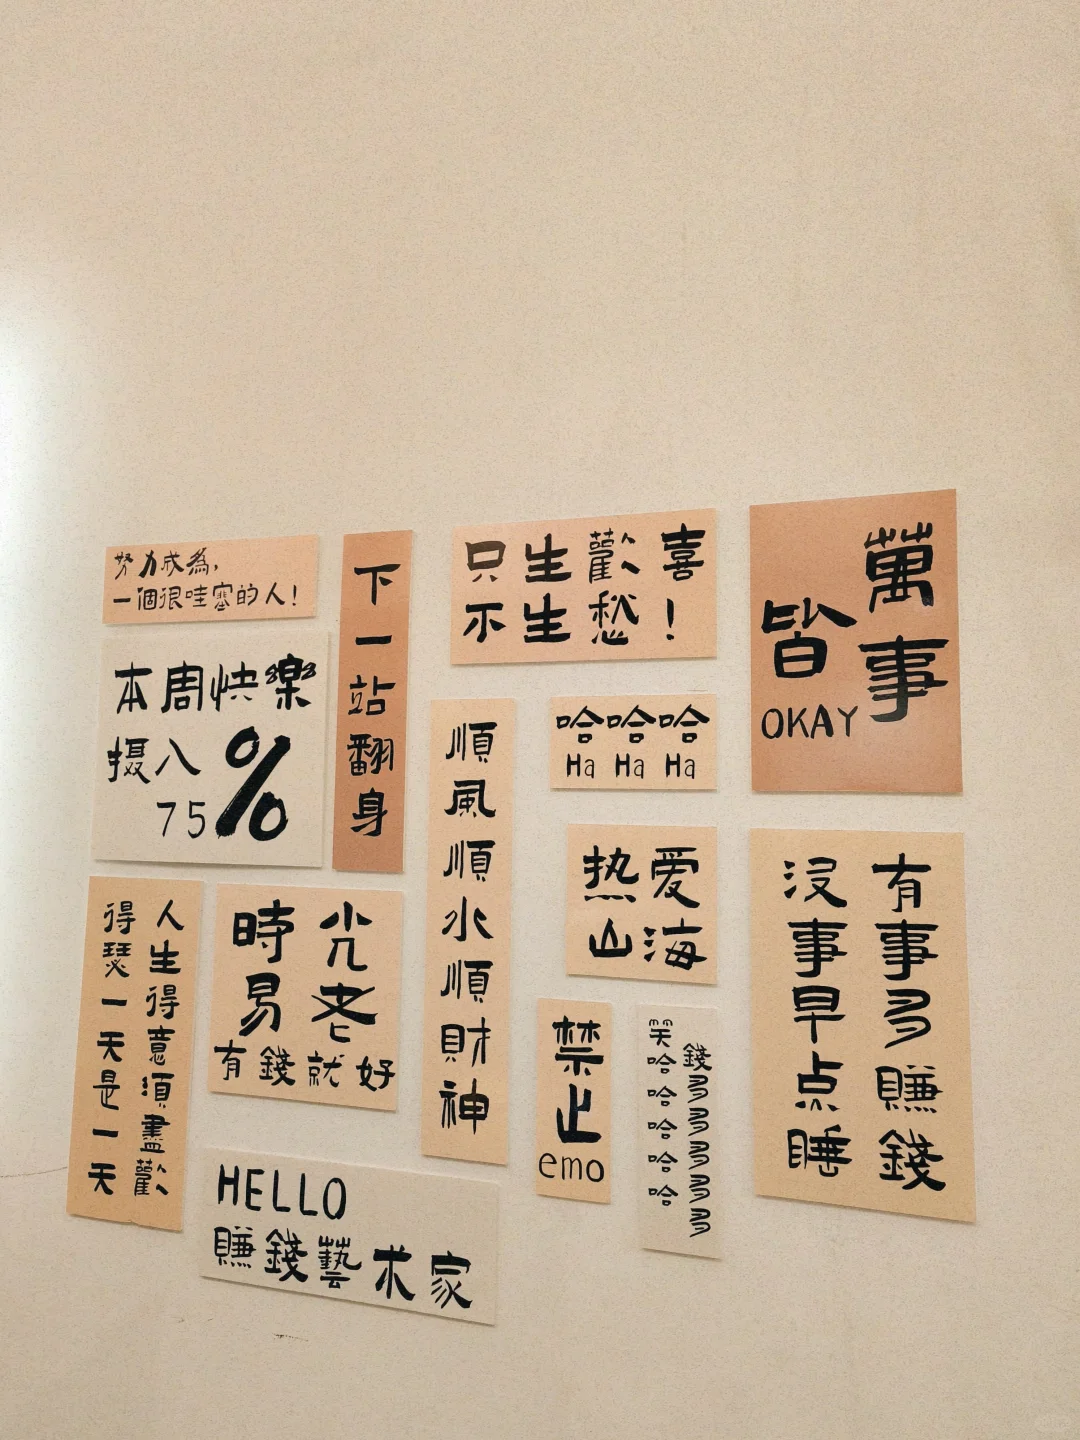 努力成為，
一個很哇塞的人！
下一站翻身
只生歡喜
不生愁！
萬事
皆
OKAY
本周快樂
摄入
75%
順風順水順財神
哈哈哈
Ha Ha Ha
热爱
山海
有事多賺錢
沒事早点睡
人生得意須盡歡
得瑟一天是一天
光老
時易
有錢就好
禁止
emo
錢多多多多多
笑哈哈哈哈哈
HELLO
賺錢藝术家